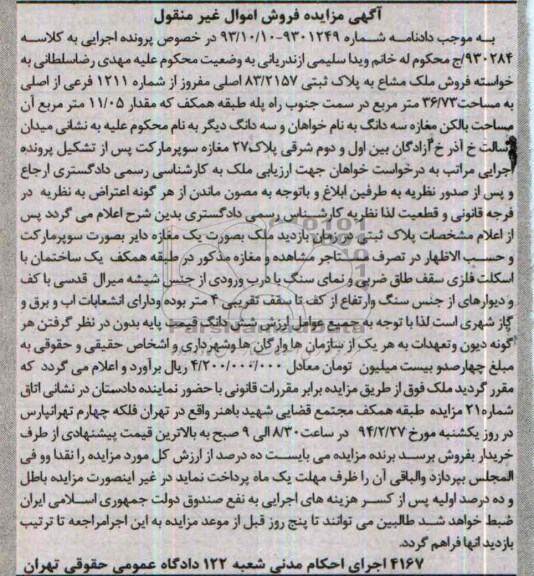 آگهی مزایده فروش اموال غیر منقول
به موجب دادنامه شماره ۹۳۰۱۲۴۹-۹۳/۱۰/۱۰ در خصوص پرونده اجرایی به کلاسه
۹۳۰۲۸۴/ج محکوم له خانم ویدا سلیمی ازندریانی به وضعیت محکوم علیه مهدی رضاسلطانی به
خواسته فروش ملک مشاع به پلاک ثبتی ۸۳/۲۱۵۷ اصلی مفروز از شماره ۱۲۱۱ فرعی از اصلی
به مساحت۳۶/۷۳ متر مربع در سمت جنوب راه پله طبقه همکف که مقدار ۱۱/۰۵ متر مربع آن
مساحت بالکن مغازه سه دانگ به نام خواهان و سه دانگ دیگر به نام محکوم علیه به نشانی میدان
رسالت خ آذر خ آزادگان بین اول و دوم شرقی پلاک۲۷ مغازه سوپرمارکت پس از تشکیل پرونده
اجرایی مراتب به درخواست خواهان جهت ارزیابی ملک به کارشناسی رسمی دادگستری ارجاع
و پس از صدور نظریه به طرفین ابلاغ و باتوجه به مصون ماندن از هر گونه اعتراض به نظریه در
فرجه قانونی و قطعیت لذا نظریه کارشناس رسمی دادگستری بدین شرح اعلام می گردد پس
از اعلام مشخصات پلاک ثبتی در زمان بازدید ملک بصورت یک مغازه دایر بصورت سوپرمارکت
و حسب الاظهار در تصرف مستاجر مشاهده و مغازه مذکور در طبقه همکف یک ساختمان با
اسکلت فلزی سقف طاق ضربی و نمای سنگ با درب ورودی از جنس شیشه میرال قدسی با کف
و دیوارهای از جنس سنگ وارتفاع از کف تا سقف تقریبی ۴ متر بوده ودارای انشعابات اب و برق و
گاز شهری است لذا با توجه به جمیع عوامل ارزش شش دانگ قیمت پایه بدون در نظر گرفتن هر
گونه دیون وتعهدات به هر یک از سازمان ها وارگان ها وشهرداری و اشخاص حقیقی و حقوقی به
مبلغ چهارصدو بیست میلیون تومان معادل ۴/۲۰۰/۰۰۰/۰۰۰ ریال برآورد و اعلام می گردد که
مقرر گردید ملک فوق از طریق مزایده برابر مقررات قانونی با حضور نماینده دادستان در نشانی اتاق
شماره۲۱ مزایده طبقه همکف مجتمع قضایی شهید باهنر واقع در تهران فلکه چهارم تهرانپارس
در روز یکشنبه مورخ ۹۴/۲/۲۷ در ساعت۸/۳۰ الی ۹ صبح به بالاترین قیمت پیشنهادی از طرف
خریدار بفروش برسد برنده مزایده می بایست ده درصد از ارزش کل مورد مزایده را نقدا وو فی
المجلس بپردازد والباقی آن را ظرف مهلت یک ماه پرداخت نماید در غیر اینصورت مزایده باطل
و ده درصد اولیه پس از کسر هزینه های اجرایی به نفع صندوق دولت جمهوری اسلامی ایران
ضبط خواهد شد طالبین می توانند تا پنج روز قبل از موعد مزایده به این اجرامراجعه تا ترتیب
بازدید انها فراهم گردد.
۴۱۶۷ اجرای احکام مدنی شعبه ۱۲۲ دادگاه عمومی حقوقی تهران